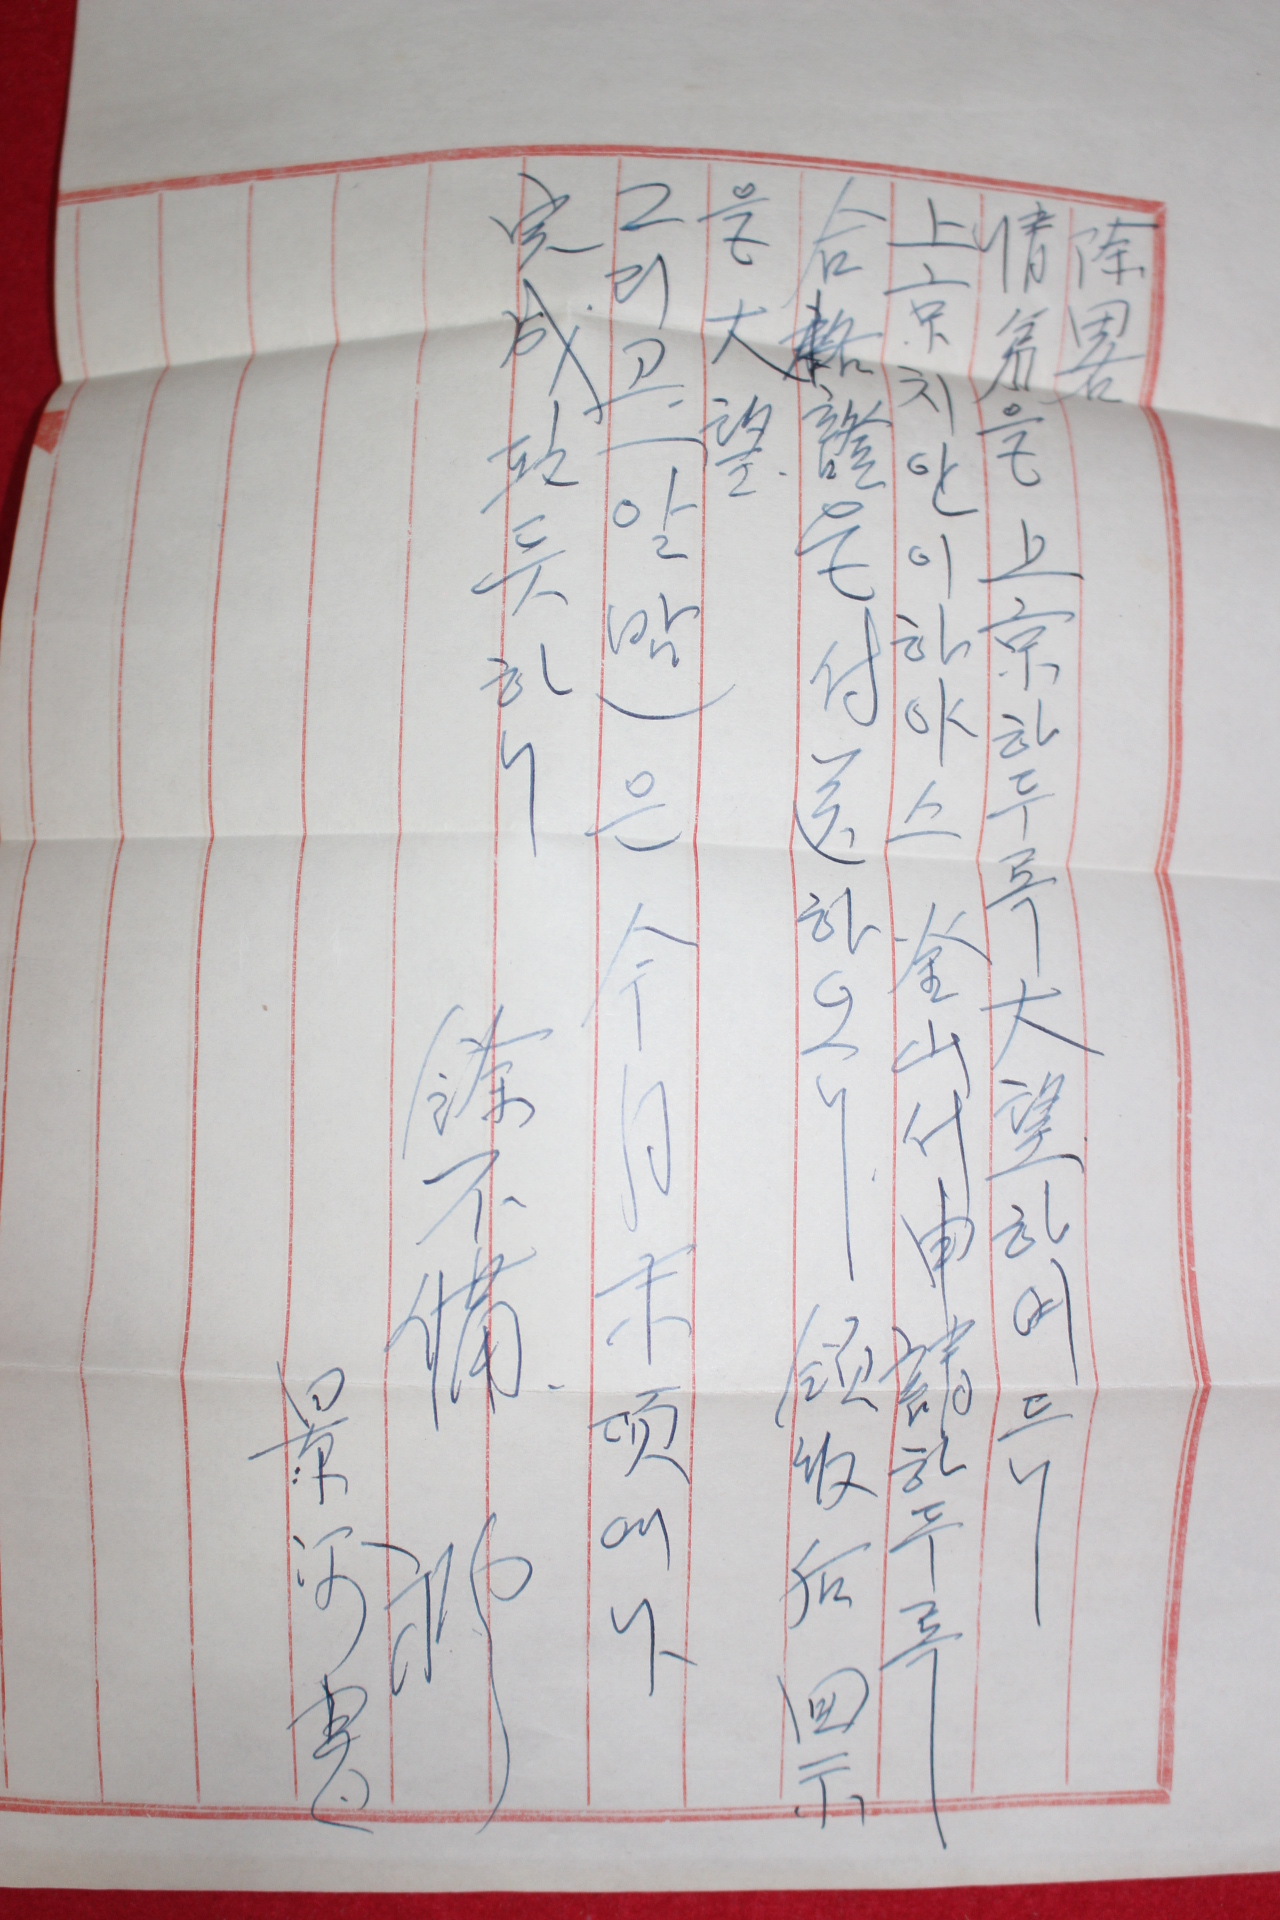 除畧
情翁을 上京하두록 大望하여두니
上京치안이하야스 釜山서 申請하두록
合格證을 付送하오니 領收后 回示
을 大望.
그리고 (알맘)은 今月末頃에나
完成될듯하니
餘不備.
景河書